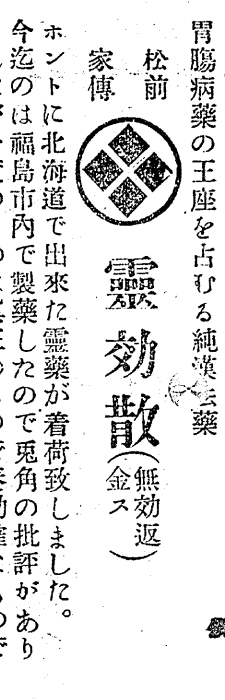 胃腸病藥の王座を占むる純漢藥
松前
家傳
靈効散
(無効返
金ス)
ホントに北海道で出來た靈藥が着荷致しました。
今迄のは福島市內で製藥したので兎角の批評があり